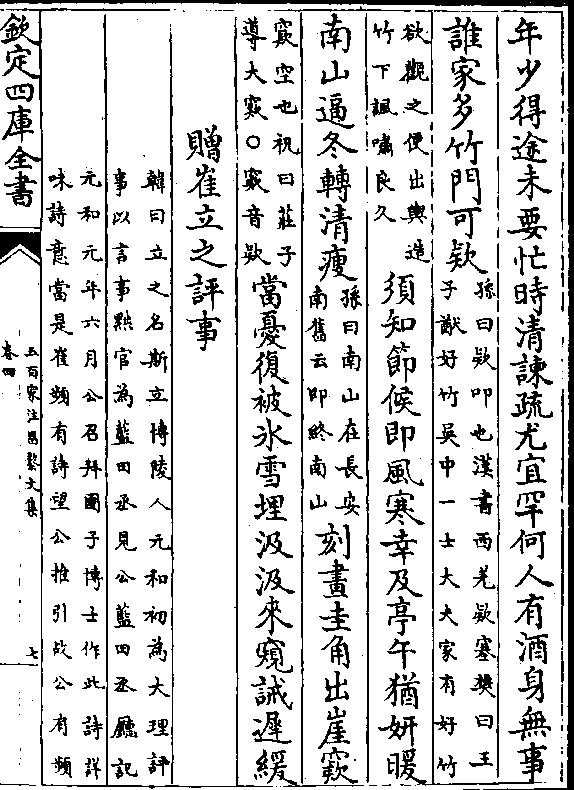 年少得途未要忙時清諫疏尤宜罕何人有酒身無事
誰家多竹門可欵
孫曰欵叩也漢書西羌欵塞樊曰王
子猷好竹吳中一士大夫家有好竹
欲觀之便出輿造
竹下諷嘯良久
須知節候即風寒幸及亭午猶妍暖
南山逼冬轉清瘦
孫曰南山在長安
南舊云即終南山
刻畫圭角出崖窾
窾空也祝曰莊子
導大窾○窾音欵
當憂復被氷雪埋汲汲來窺誡遲緩
贈崔立之評事
韓曰立之名斯立博陵人元和初為大理評
事以言事黜官為藍田丞見公藍田丞廳記
元和元年六月公召拜國子博士作此詩詳
味詩意當是崔頻有詩望公推引故公有頻
欽定四庫全書
五百家注昌黎文集
卷四
七